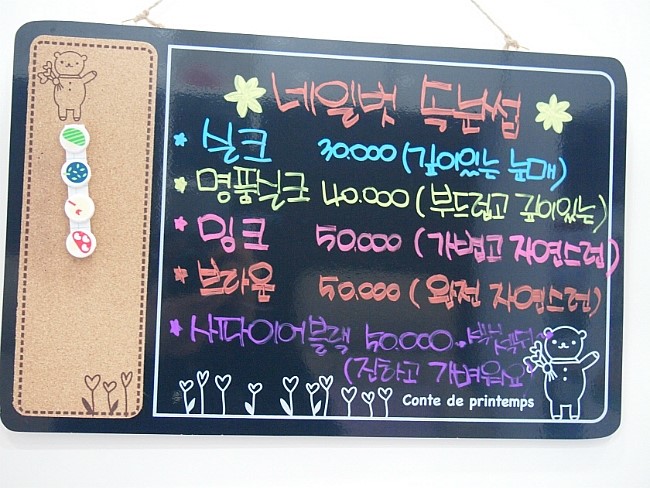 네일벗 속눈썹
실크 30.000 (깊이있는 눈매)
명품실크 40.000 (부드럽고 깊이있는)
밍크 50.000 (가볍고 자연스런)
브라움 50.000 (완전 자연스런)
사파이어블랙 50.000
(진하고 가벼워요
Conte de printemps